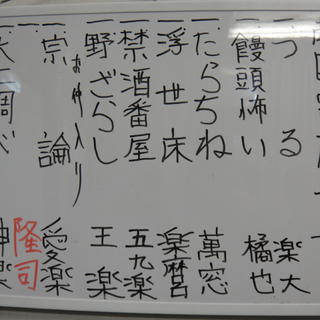 一、つる 楽大
一、饅頭怖い 橘也
一、たらちね 萬窓
一、浮世床 楽麿呂
一、禁酒番屋 五九楽
一、野ざらし 王楽
お仲入り
一、宗論 愛楽
隆司